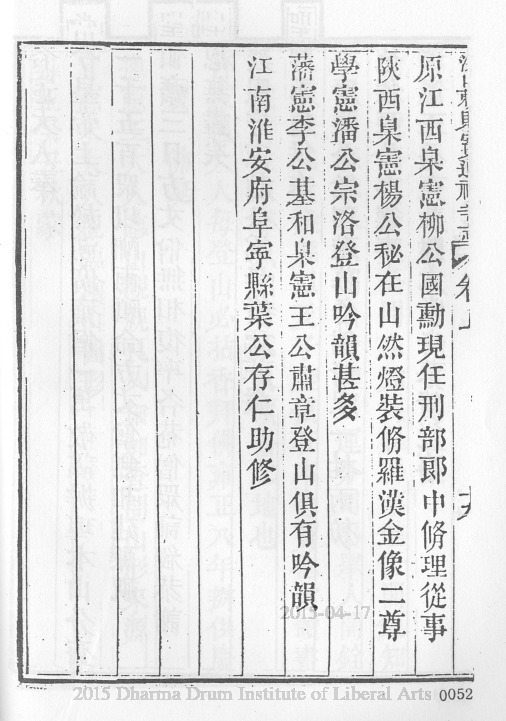 原江西臬憲柳公國勳現任刑部郎中脩理從事
陝西臬憲楊公秘在山然燈裝脩羅漢金像二尊
學憲潘公宗洛登山吟韻甚多
藩憲李公基和臬憲王公肅章登山俱有吟韻
江南淮安府阜寧縣葉公存仁助修
2013-04-17
2015 Dharma Drum Institute of Liberal Arts 0052